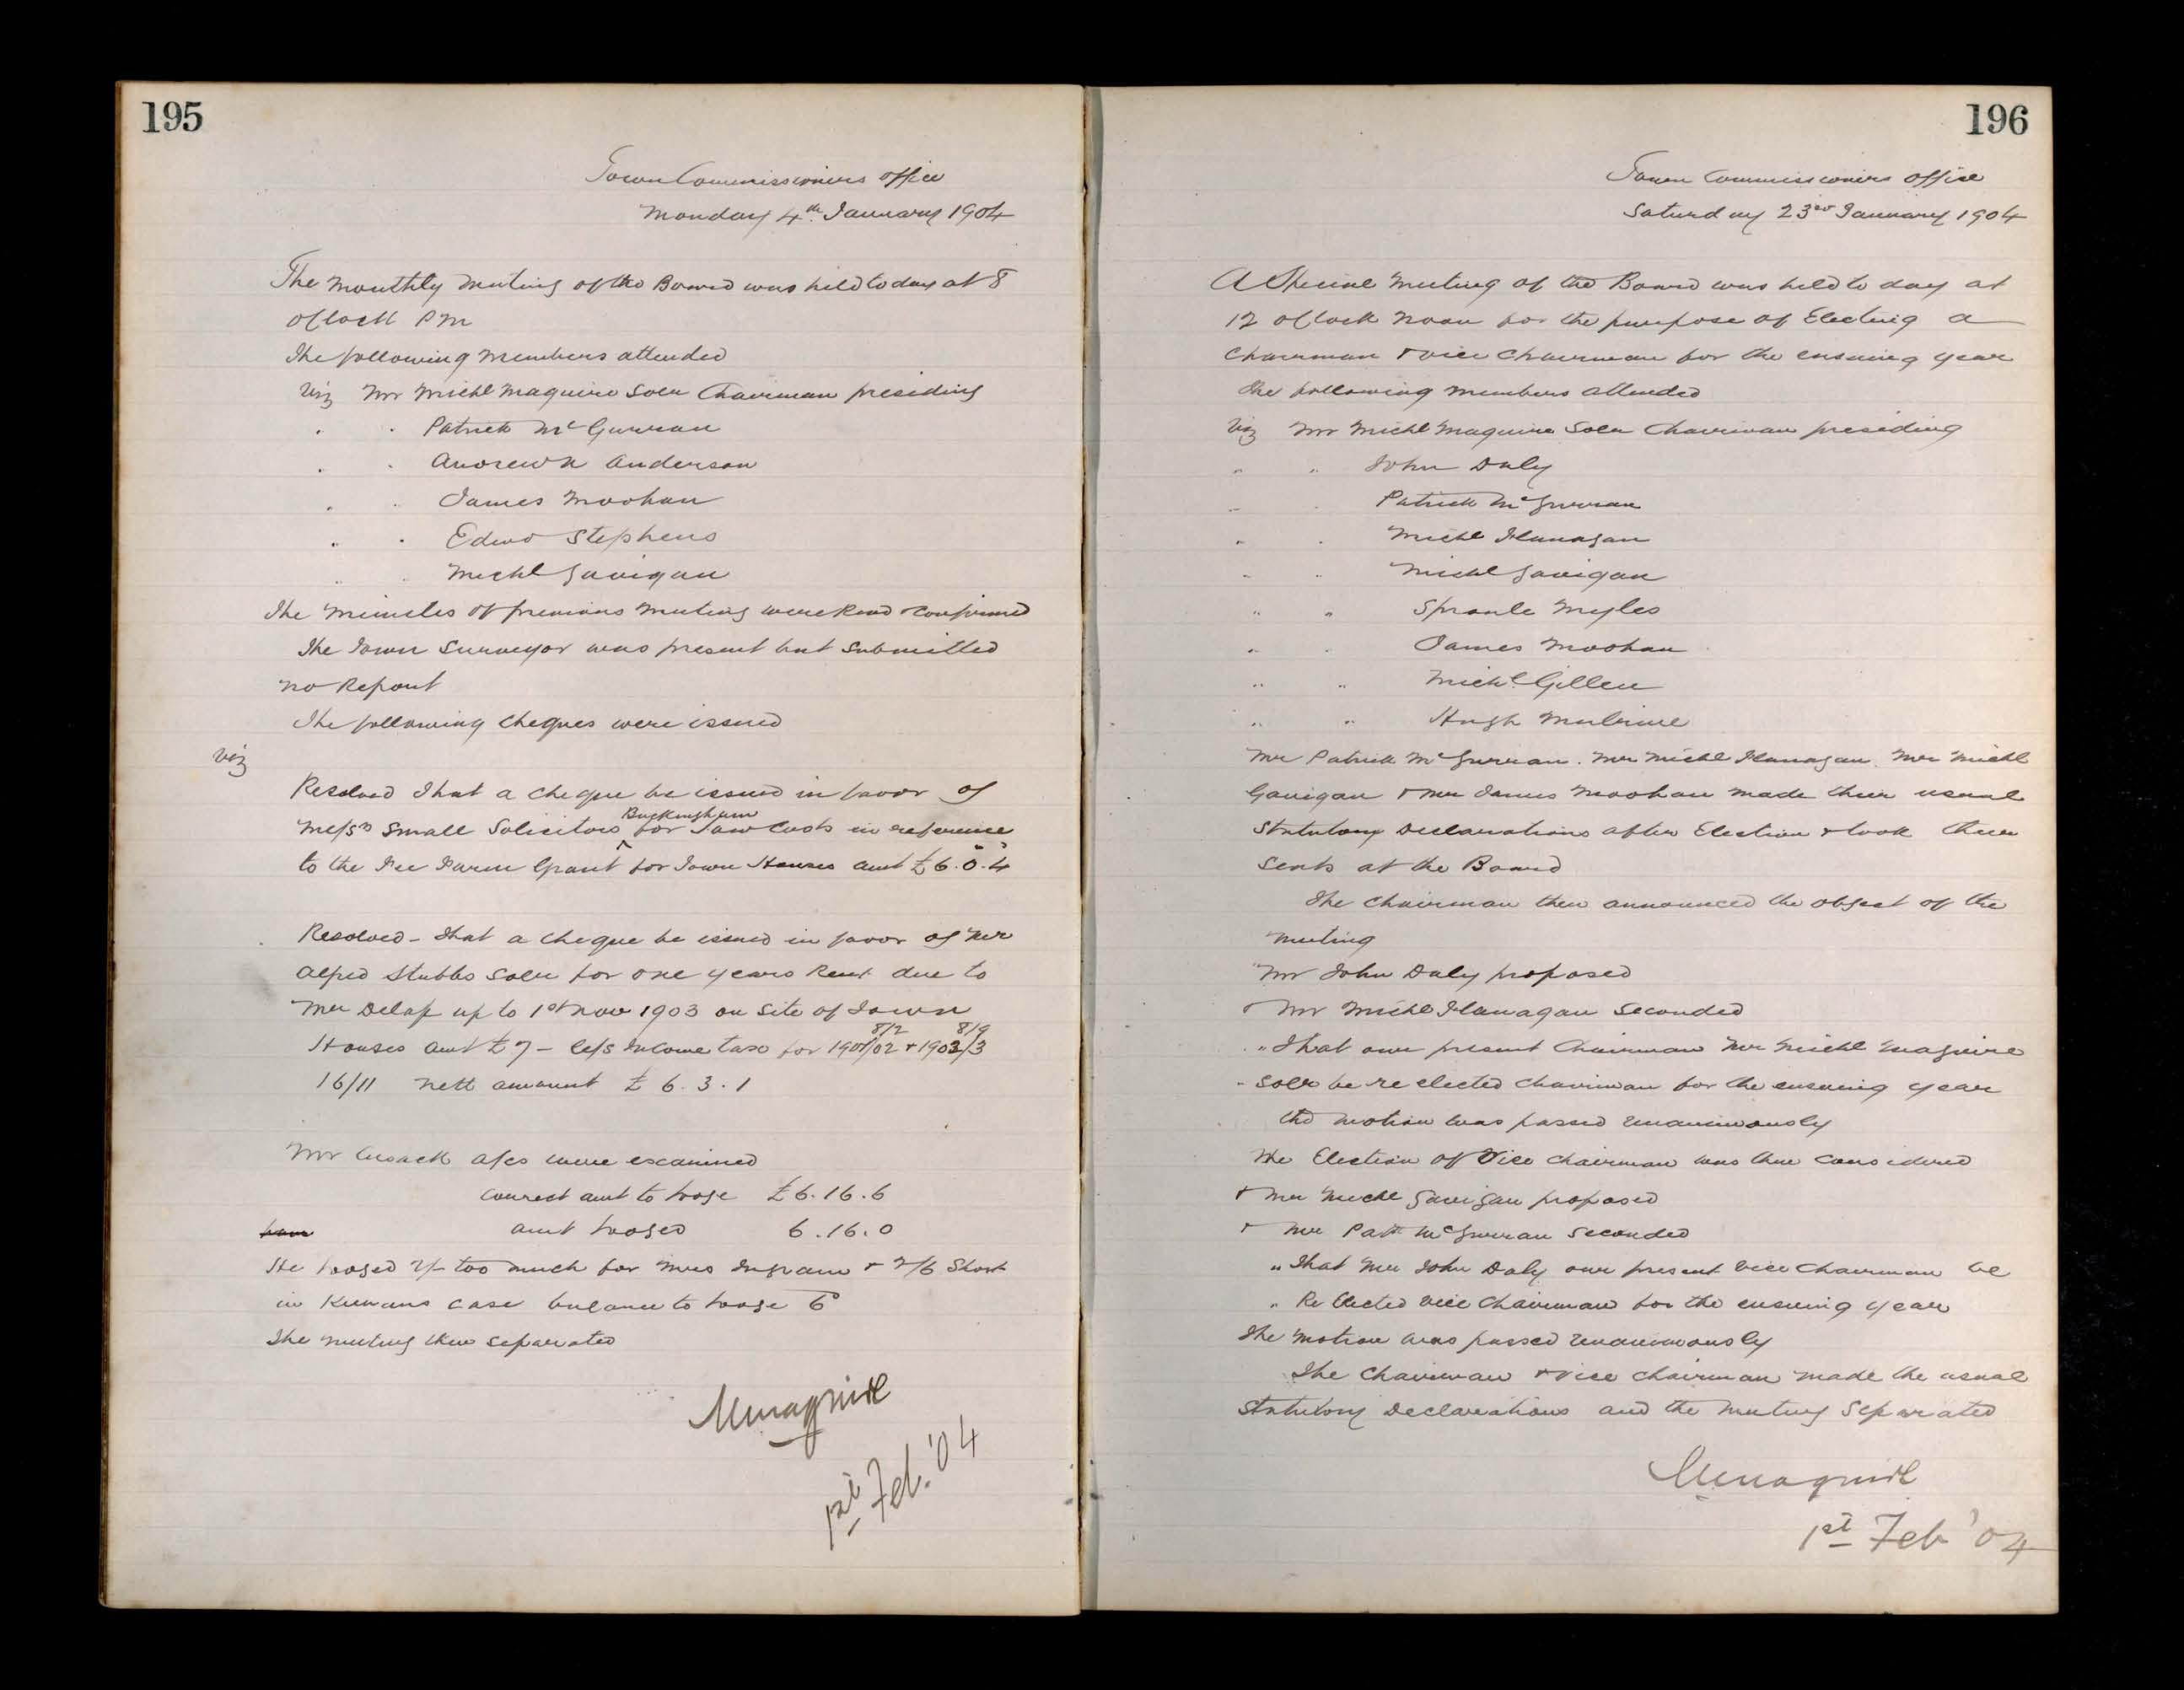 195
Town Commissioners Office
Monday 4th January 1904
The Monthly Meeting of the Board was held to day at 8
O'Clock PM
The following Members attended
Viz Mr Michl Maguire Solr Chairman presiding
" " Patrick McGurran
" " Andrew Anderson
" " James Moohan
" " Edwd Stephens
" " Michl Gavigan
The Minutes of previous Meeting were Read & Confirmed
The Town Surveyor was present but Submitted
no Report
The following Cheques were issued
Viz
Resolved That a cheque be issued in favor of
Messrs Small Solicitors for Law Costs in reference
Buckingham
to the Fee Farm Grant ^ for Town Houses amt £6.0.4
Resolved - That a cheque be issued in favor of Mr
Alfred Stubbs Solr for one years Rent due to
Mr Delap up to 1st Nov 1903 on Site of Town
8/2 8/9
Houses amt £7 - less Income tax for 1901/02 & 1902/3
16/11 nett amount £6.3.1
Mr Cusack a/cs were examined
Correct amt to lodge £6.16.6
amt lodged 6.16.0
He lodged 2/- too much for Mrs Ingram & 2/6 Short
in Kiernans case balance to lodge 6d
The meeting then separated
MMaguire
1st Feb. '04
196
Town Commissioners Office
Saturday 23rd January 1904
A Special Meeting of the Board was held to day at
12 O'Clock Noon for the purpose of Electing a
Chairman & Vice Chairman for the ensuing year
The following Members attended
Viz Mr Michl Maguire Solr Chairman presiding
" " John Daly
" " Patrick McGurran
" " Michl Flanagan
" " Michl Gavigan
" " Sproule Myles
" " James Moohan
" " Michl Gillen
" " Hugh Mulrine
Mr Patrick McGurran. Mr Michl Flanagan. Mr Michl
Gavigan & Mr James Moohan made their usual
Statutory Declarations after Election & took their
seats at the Board
The Chairman then announced the object of the
Meeting
Mr John Daly proposed
& Mr Michl Flanagan Seconded
" That our present Chairman Mr Michl Maguire
" Solr be re elected Chairman for the ensuing year
the Motion was passed unanimously
The Election of Vice Chairman was then Considered
& Mr Michl Gavigan proposed
& Mr Patk McGurran Seconded
" That Mr John Daly our present Vice Chairman be
" Re Elected Vice Chairman for the ensuing year
The Motion was passed unanimously
The Chairman & Vice Chairman made the usual
Statutory Declarations and the Meeting Separated
MMaguire
1st Feb '04